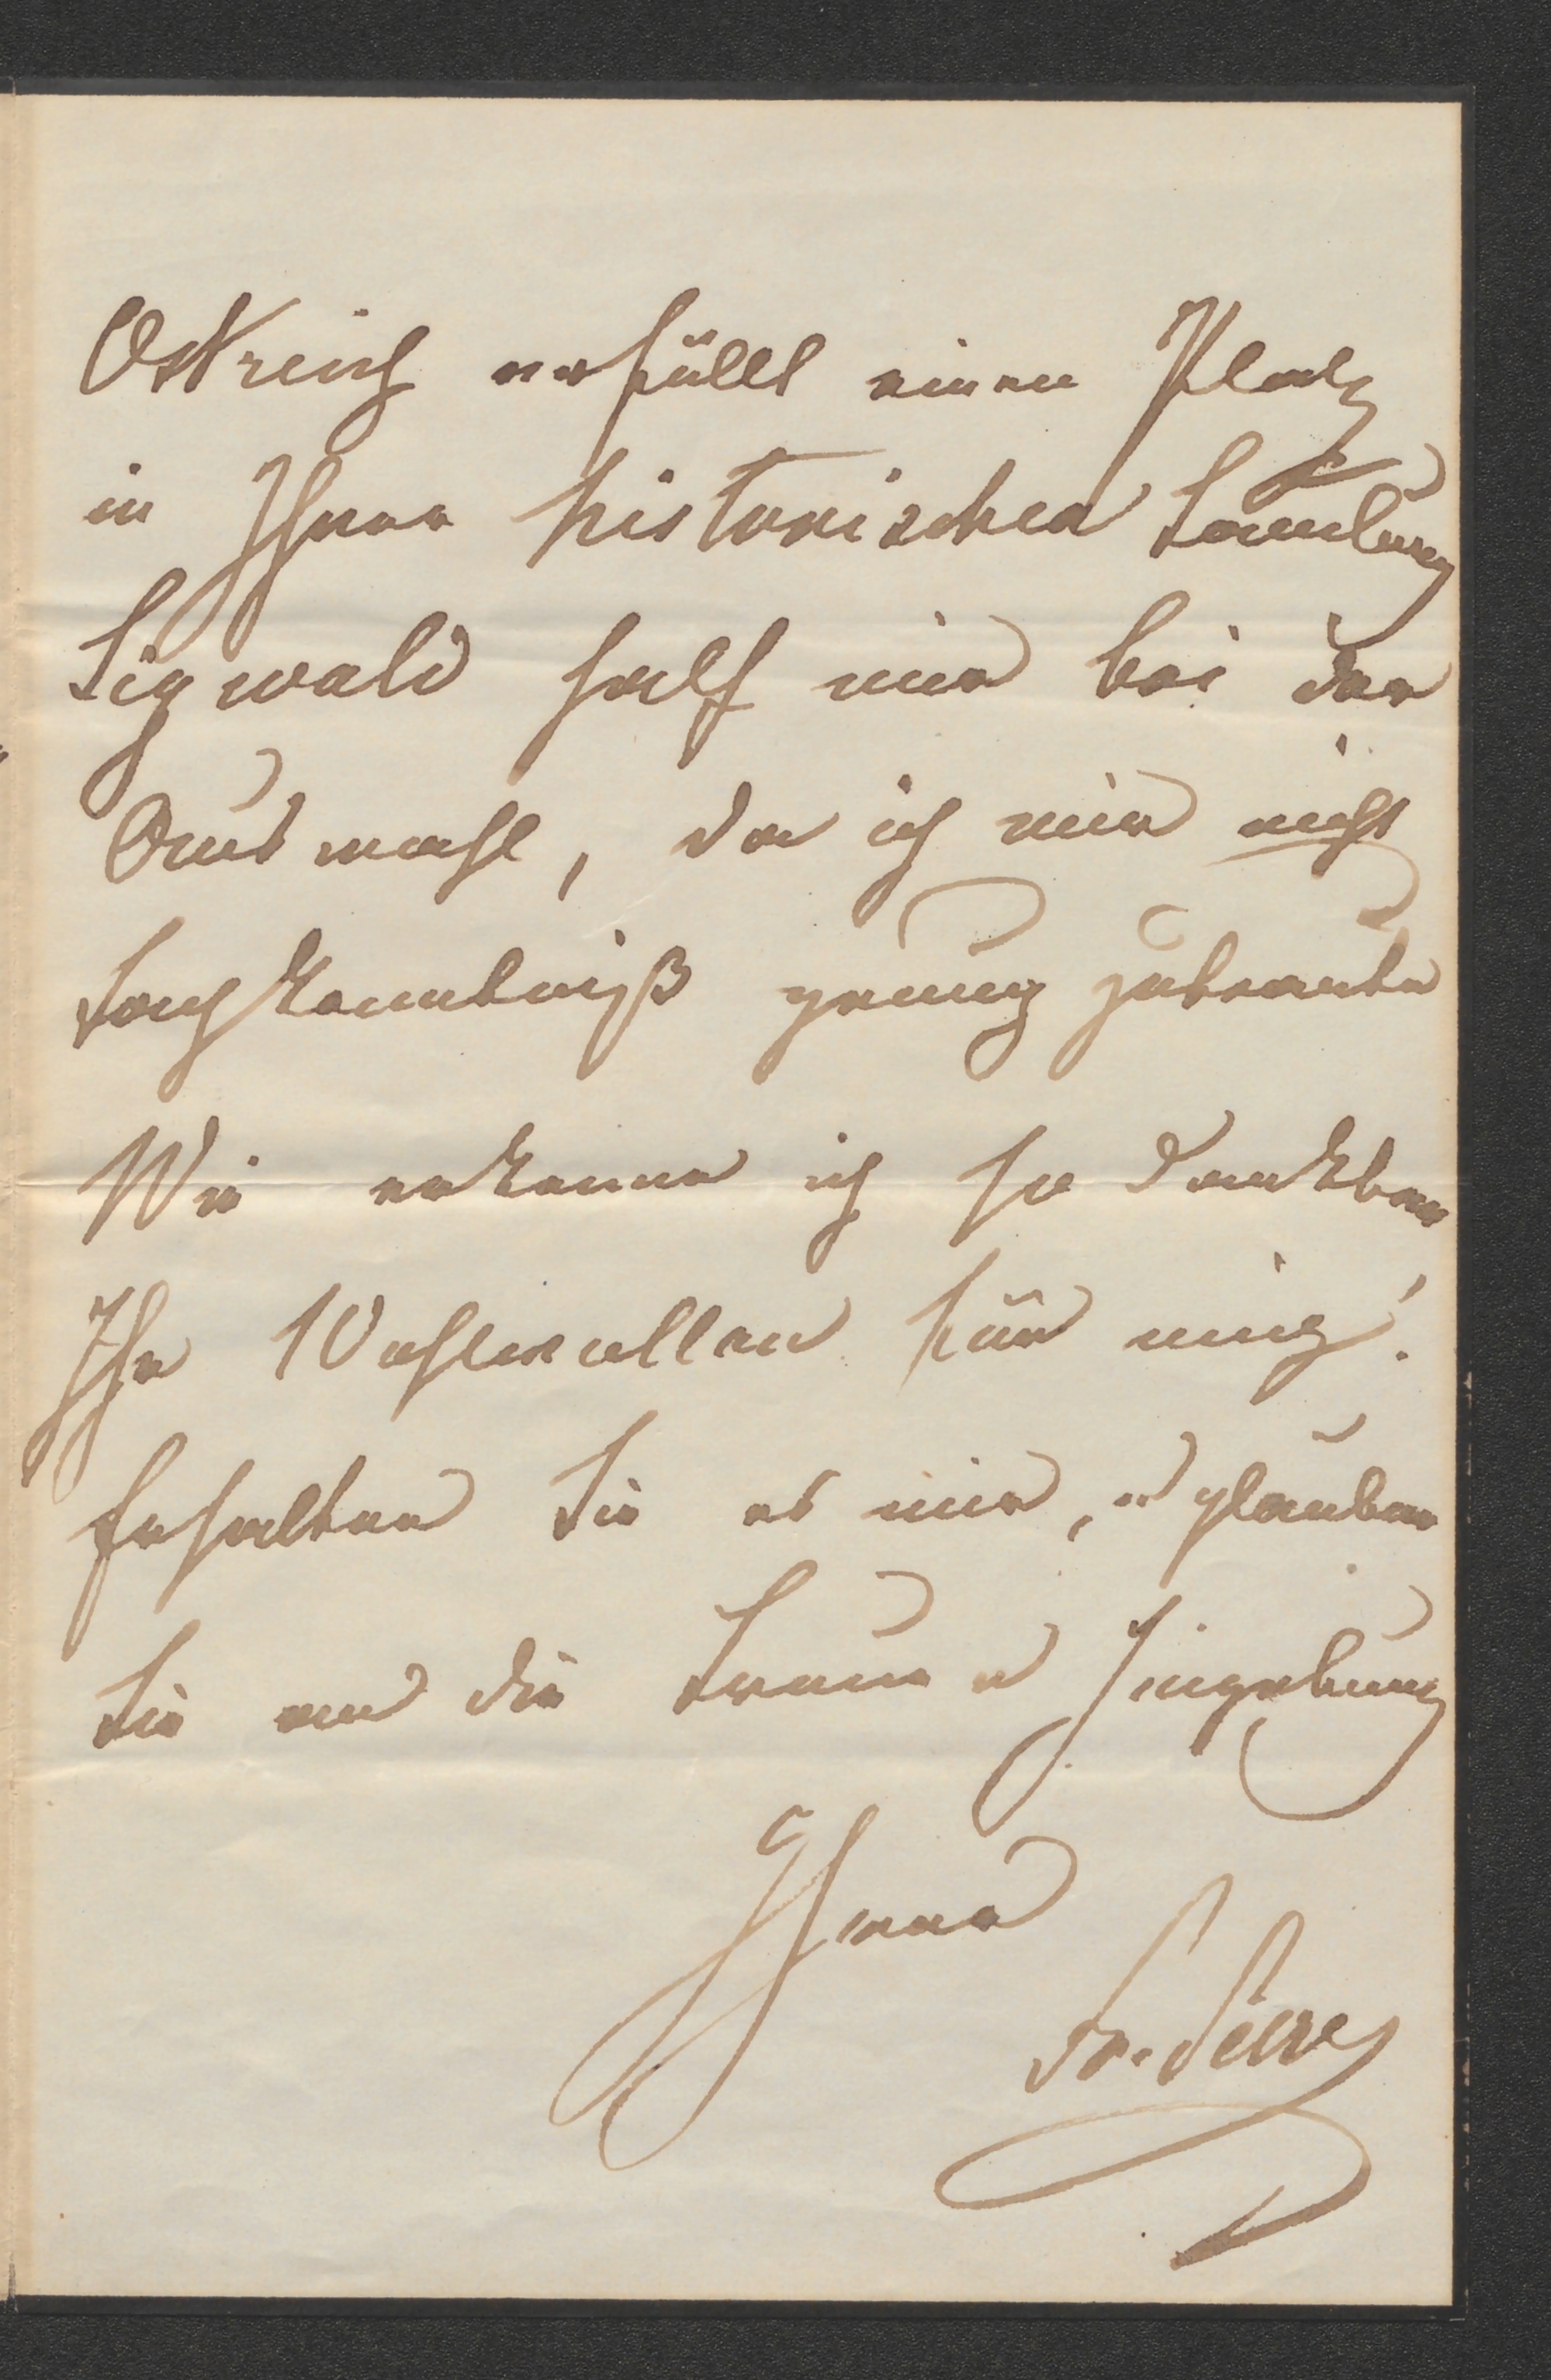 Ostreich erfüllt einen Platz
in Ihrer historischen Samlung
Sigwald half mir bei der
Auswahl, da ich mir nicht
Sachkenntniß genug zutraute
Wie erkenne ich so dankbar
Ihr Wohlwollen für mich!
Erhalten Sie es mir, u glauben
Sie an die treue Hingebung
Ihrer
Fr. Serre